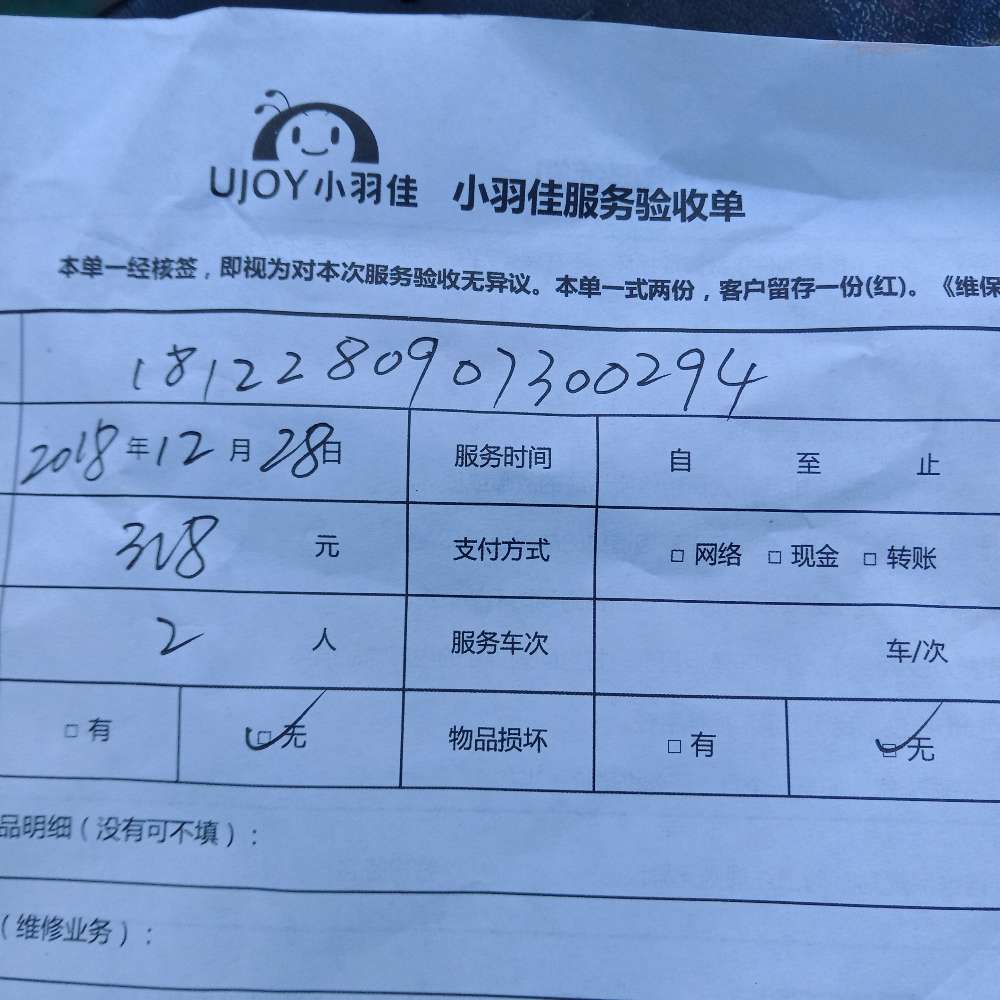 UJOY小羽佳 小羽佳服务验收单
本单一经核签，即视为对本次服务验收无异议。本单一式两份，客户留存一份(红)。《维保
1812280907300294
2018年12月28日 服务时间 自 至 止
328 元 支付方式 □ 网络 □ 现金 □ 转账
2 人 服务车次 车/次
□ 有 □ 无 物品损坏 □ 有 □ 无
品明细（没有可不填）：
（维修业务）：